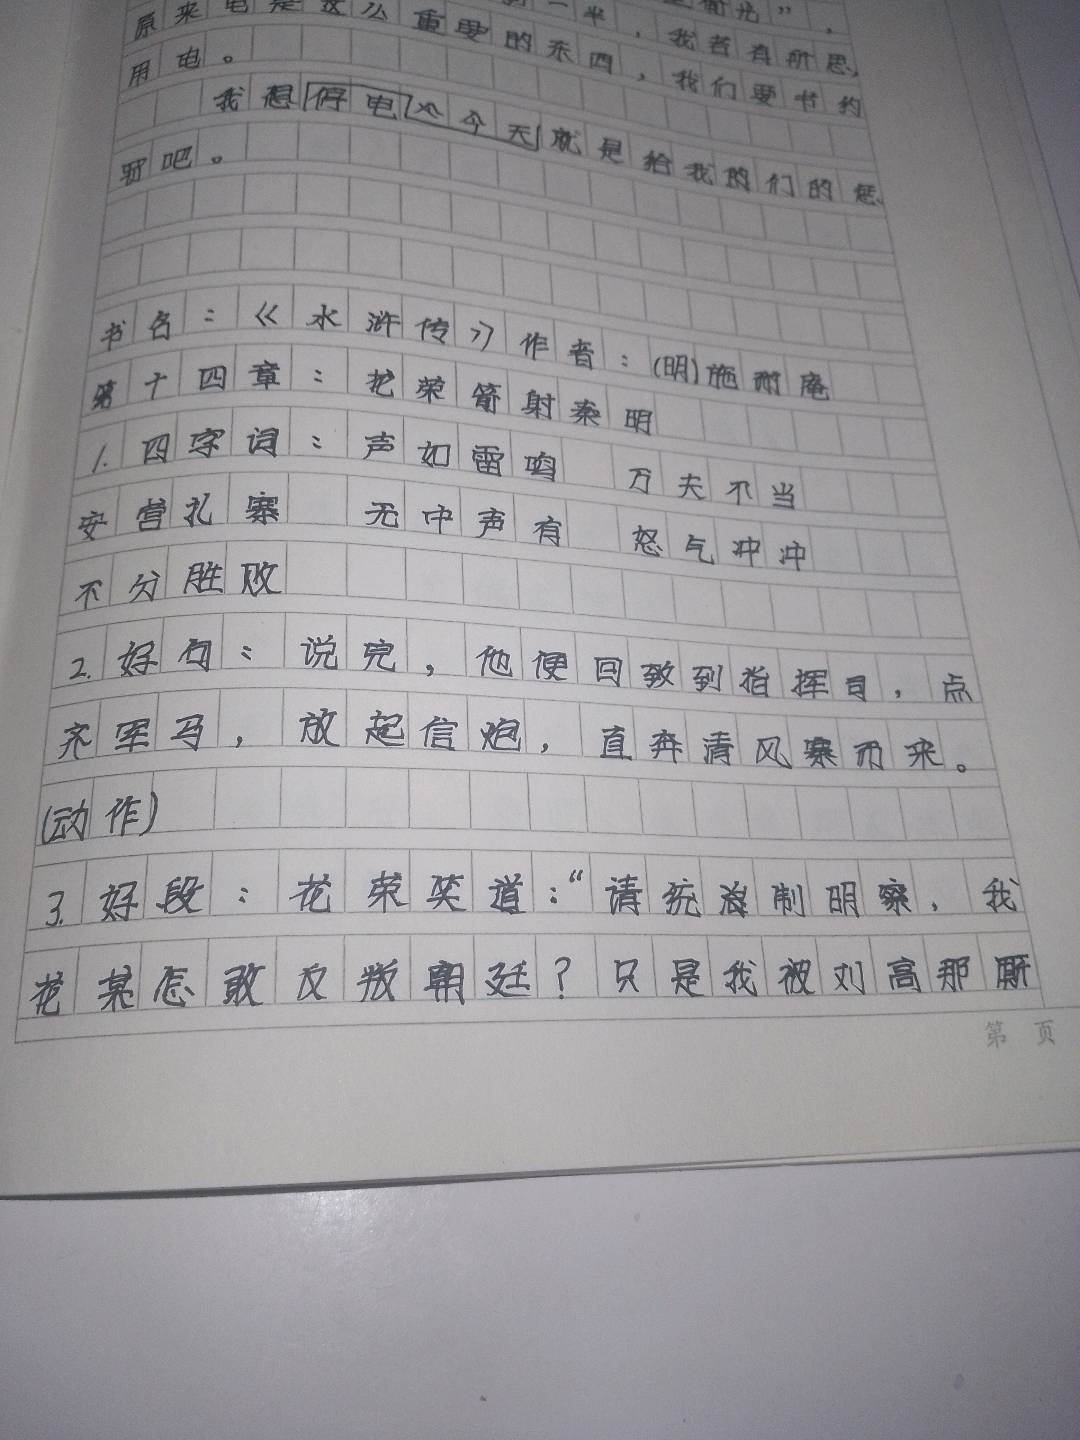 一半，
原来电是这么重要的东西，我若有所思，
用电。我们要节约
我想停电今天就是给我的们的惩
罚吧。
书名：《水浒传》作者：(明)施耐庵
第十四章：花荣箭射秦明
1.四字词：声如雷鸣 万夫不当
安营扎寨 无中声有 怒气冲冲
不分胜败
2.好句：说完，他便回致到指挥司，点
齐军马，放起信炮，直奔清风寨而来。
(动作)
3.好段：花荣笑道：“请统制明察，我
花某怎敢反叛朝廷？只是我被刘高那厮
第 页